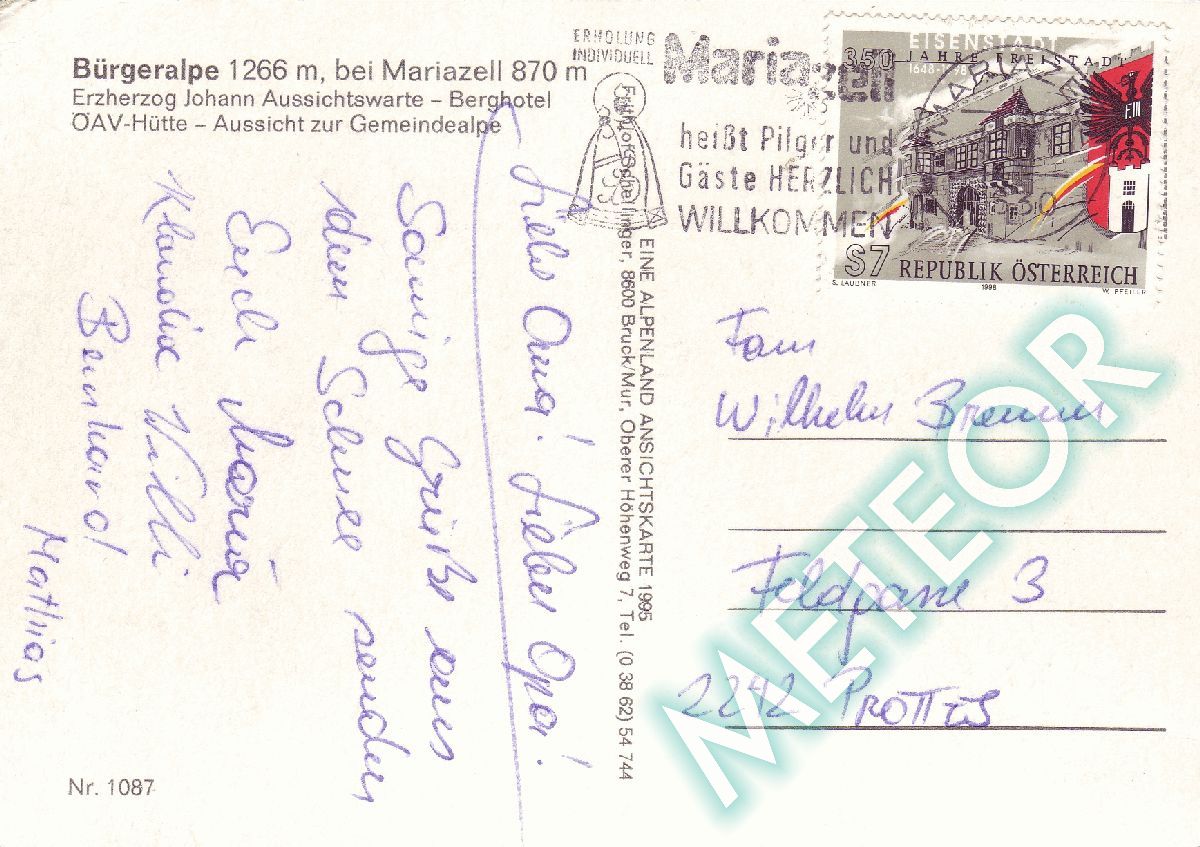 Bürgeralpe 1266 m, bei Mariazell 870 m
Erzherzog Johann Aussichtswarte – Berghotel
ÖAV-Hütte – Aussicht zur Gemeindealpe
ERHOLUNG
INDIVIDUELL
Mariazell
heißt Pilger und
Gäste HERZLICH
WILLKOMMEN
EISENSTADT
350 JAHRE FREISTADT
1648-1998
F.III
S7 REPUBLIK ÖSTERREICH
S. LAUBNER 1998 W. PFEILER
Liebe Oma! Lieber Opa!
Sonnige Grüße aus
dem Schnee senden
Euch Maria
Klaudia Villi
Bernhard
Mathias
EINE ALPENLAND ANSICHTSKARTE 1995
Schellinger, 8600 Bruck/Mur, Oberer Höhenweg 7, Tel. (0 38 62) 54 744
Fam
Wilhelm Brenner
Feldgasse 3
2242 PROTTES
Nr. 1087
METEOR